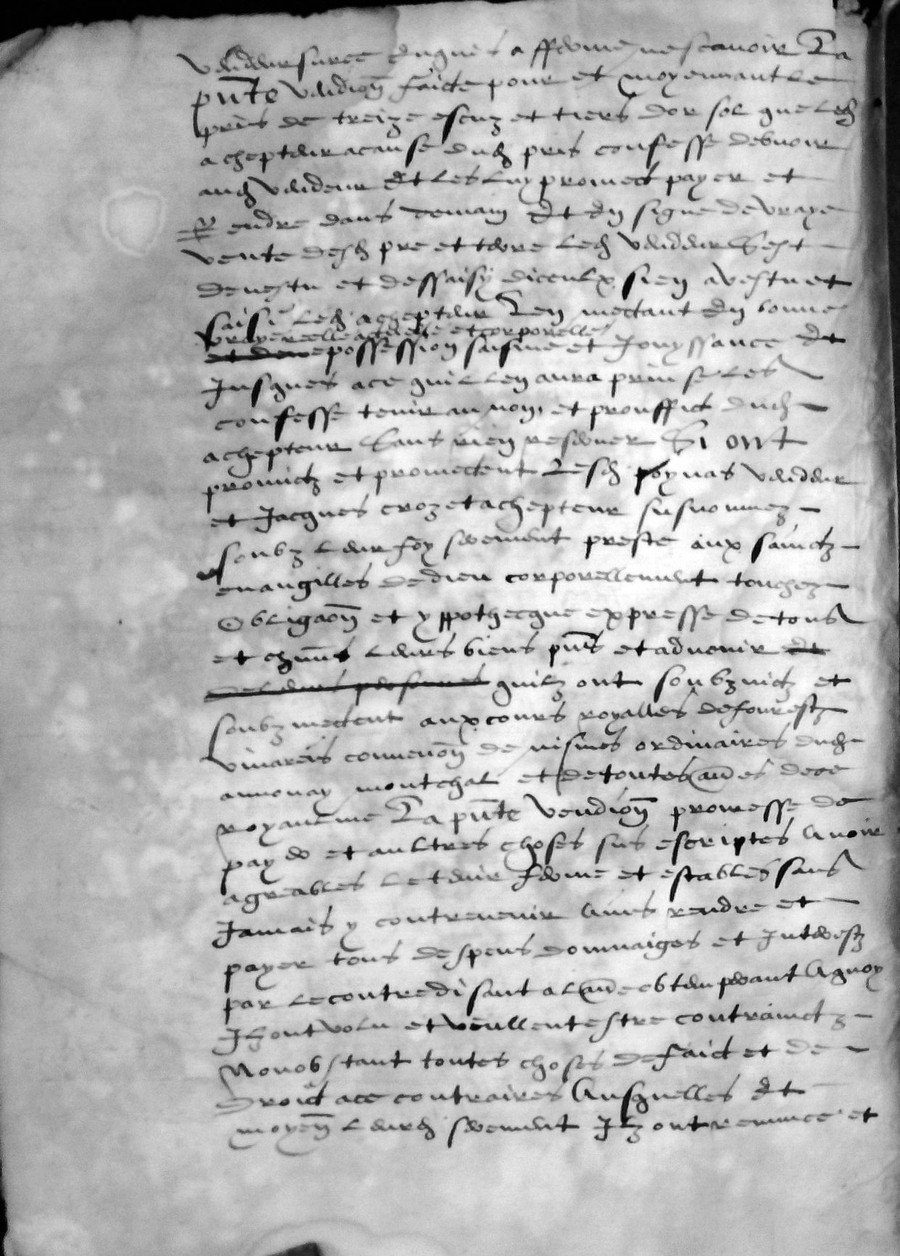 vendeur surce enquis a afferme ne scavoir La
pnte vendion faicte pour et moyennant le
pris de treize escuz et tiers dor sol que led
achepteur a cause dud pris confesse debvoir
aud vendeur Et les luy promect payer et
Rendre dans demain Et en signe de vraye
vente desd pre et terre led vendeur Sest
devestu et dessaisy diceulx sien a vestu et
saisi led achepteur Len mectant en bonne
vraye reelle actuelle et corporelle
et dem possession saisine et Jouyssance Et
Jusques a ce quil len aura prinse les
confesse tenir au nom et prouffict dud
achepteur Sans rien reserver Si ont
promictz et promectent lesd poynas vendeur
et Jacques crozet achepteur susnommez
soubz leur foy serement preste aux sainctz
evangilles de dieu corporellement touchez
Obligaon et yppothecque expresse de tous
et chuns leurs biens pnts et advenir et
de leurs personnes quilz ont soubzmictz et
soubzmectent aux cours royalles de forestz
vivareis convenon de nismes ordinaires dud
annonay montchal et de toutes aues de ce
royaulme La pnte vendion promesse de
payer et aultres choses sus escriptes Avoir
agreables le tenir ferme et estables sans
Jamais y contrevenir Ains rendre et
payer tous despens dommaiges et Interestz
par le contredisant a laue obtemperant A quoy
Ilz ont volu et veullent estre contrainctz
Nonobstant toutes choses de faict et de
Droict a ce contraires Ausquelles Et
moyen leurd serement Ilz ont renonce et